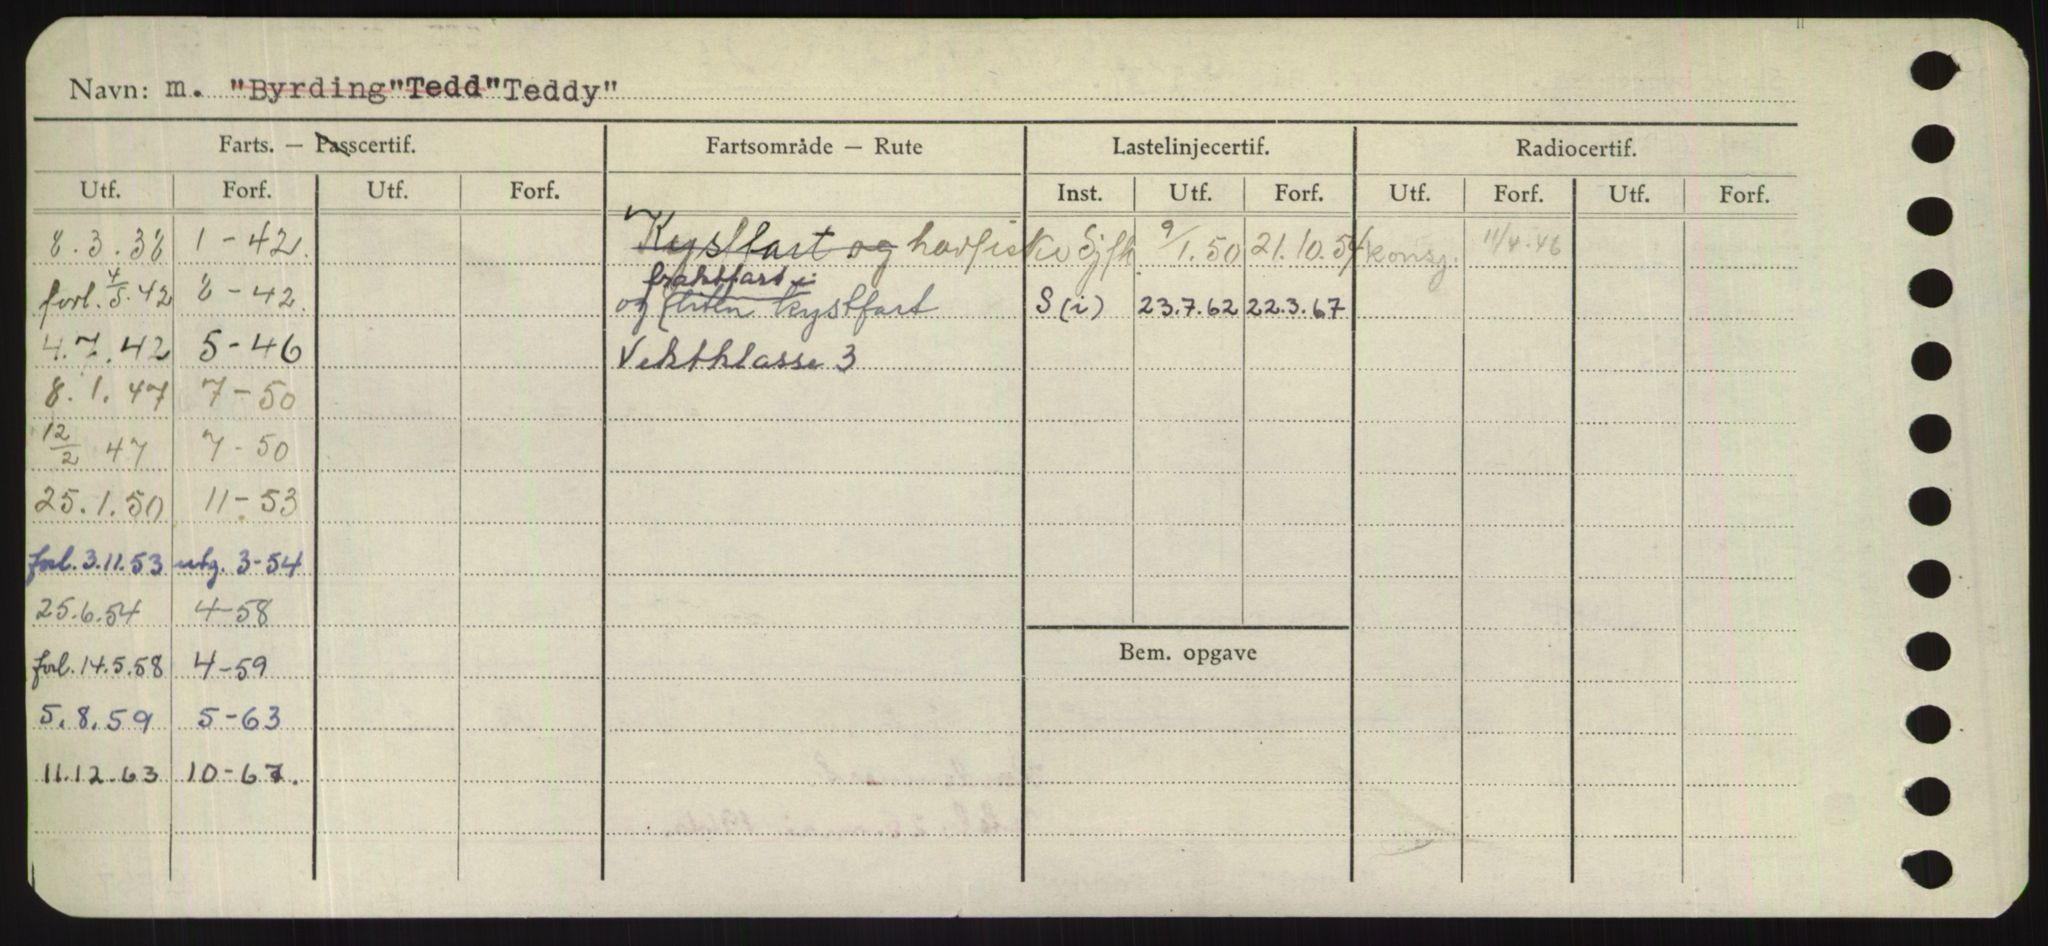 Navn: m. "Byrding" Tedd "Teddy"
Farts. — Passcertif. Fartsområde — Rute Lastelinjecertif. Radiocertif.
Utf. Forf. Utf. Forf. Inst. Utf. Forf. Utf. Forf. Utf. Forf.
8.3.38 1-42. Kystfart og havfiske Sjfk 9/1.50 21.10.54 konsj. 11/4-46
fraktfart i
forl. 4/5.42 8-42. og liten kystfart S(i) 23.7.62 22.3.67
4.7.42 5-46 Vektklasse 3
8.1.47 7-50
12/2 47 7-50
25.1.50 11-53
forl. 3.11.53 utg. 3-54
25.6.54 4-58
Bem. opgave
forl. 14.5.58 4-59
5.8.59 5-63
11.12.63 10-67.